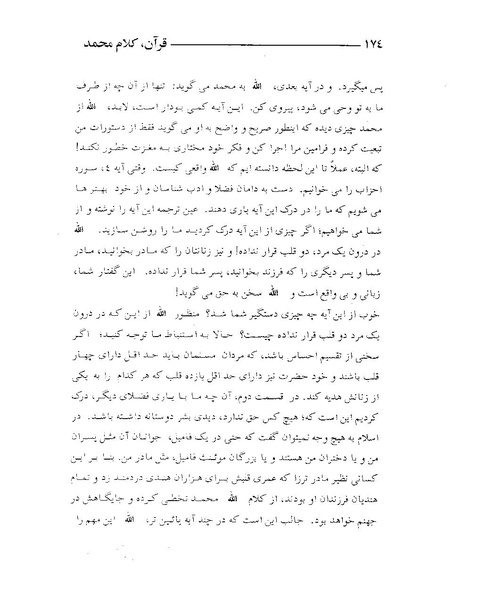 ١٧٤ قرآن، کلام محمد
پس میگیرد. و در آیه بعدی، الله به محمد می گوید: تنها از آن چه از طرف
ما به تو وحی می شود، پیروی کن. این آیه کمی بودار است، لابد، الله از
محمد چیزی دیده که اینطور صریح و واضح به او می گوید فقط از دستورات من
تبعیت کرده و فرامین مرا اجرا کن و فکر خود مختاری به مغزت خطور نکند!
که البته، عملاً تا این لحظه دانسته ایم که الله واقعی کیست. وقتی آیه ٤، سوره
احزاب را می خوانیم. دست به دامان فضلا و ادب شناسان و از خود بهترها
می شویم که ما را در درک این آیه یاری دهند. عین ترجمه این آیه را نوشته و از
شما می خواهیم؛ اگر چیزی از این آیه درک کردید ما را روشن سازید. الله
در درون یک مرد، دو قلب قرار نداده! و نیز زنانتان را که مادر بخوانید، مادر
شما و پسر دیگری را که فرزند بخوانید، پسر شما قرار نداده. این گفتار شما،
زبانی و بی واقع است و الله سخن به حق می گوید!
خوب از این آیه چه چیزی دستگیر شما شد؟ منظور الله از این که در درون
یک مرد دو قلب قرار نداده چیست؟ حالا به استنباط ما توجه کنید؛ اگر
سخنی از تقسیم احساس باشد، که مردان مسلمان باید حد اقل دارای چهار
قلب باشند و خود حضرت نیز دارای حد اقل یازده قلب که هر کدام را به یکی
از زنانش هدیه کند. در قسمت دوم، آن چه ما با یاری فضلای دیگر، درک
کردیم این است که؛ هیچ کس حق ندارد، دیدی بشر دوستانه داشته باشد. در
اسلام به هیچ وجه نمیتوان گفت که حتی در یک فامیل، جوانان آن مثل پسران
من و یا دختران من هستند و یا بزرگان مونث فامیل، مثل مادر من. بنا بر این
کسانی نظیر مادر ترزا که عمری قلبش برای هزاران هندی دردمند زد و تمام
هندیان فرزندان او بودند، از کلام الله محمد تخطی کرده و جایگاهش در
جهنم خواهد بود. جالب این است که در چند آیه پائین تر، الله این مهم را